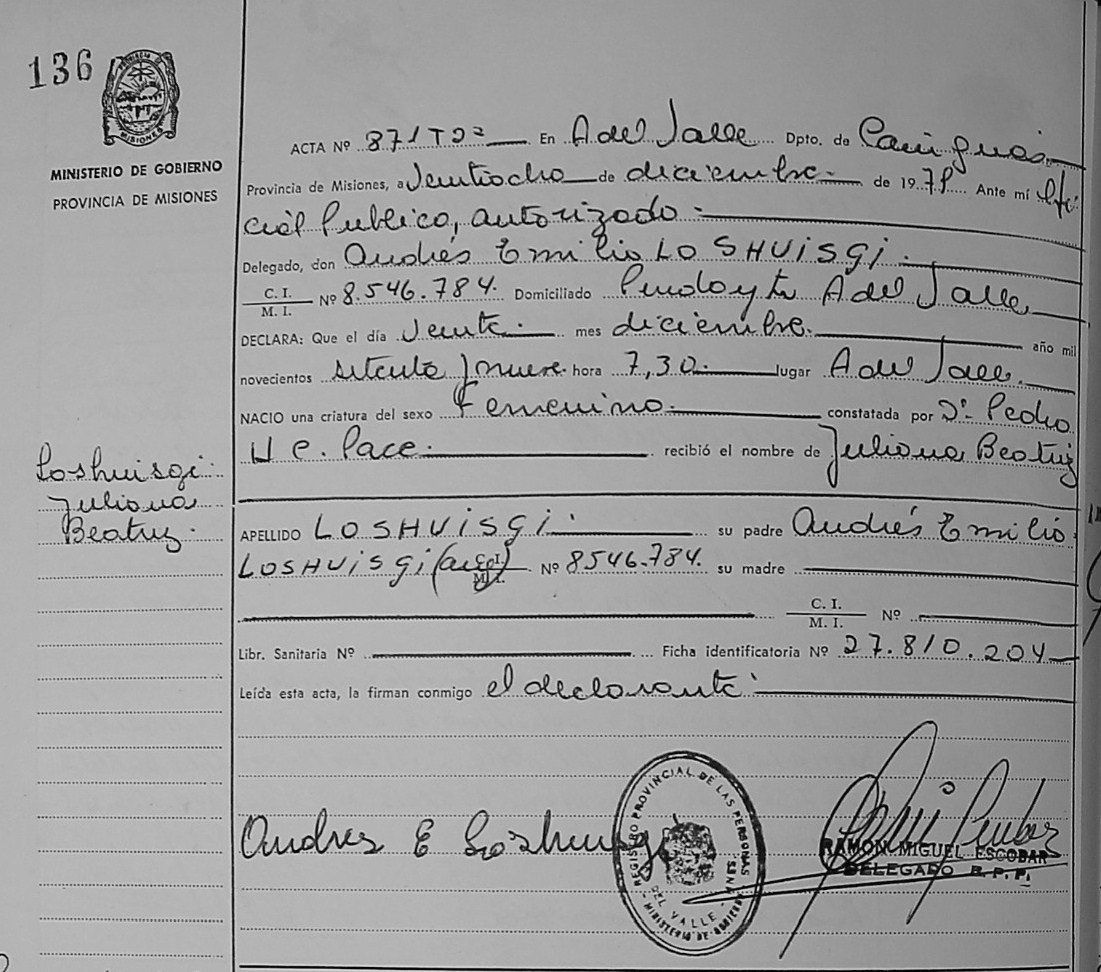 136
PROVINCIA DE
MISIONES
MINISTERIO DE GOBIERNO
PROVINCIA DE MISIONES
ACTA Nº 871 TD2ª En A del Valle Dpto. de Cainguás
Provincia de Misiones, a Veintiocho de diciembre de 1979 Ante mí Ofi
cial Publico, autorizado
Delegado, don Andrés Emilio LOSHUISGI
C. I.
M. I. Nº 8.546.784. Domiciliado A del Valle
DECLARA: Que el día Veinte mes diciembre año mil
novecientos setenta y nueve hora 7,30 lugar A del Valle
NACIO una criatura del sexo Femenino constatada por Dr. Pedro
H C. Pace recibió el nombre de Juliana Beatriz
Loshuisgi
Juliana
Beatriz
APELLIDO LOSHUISGI su padre Andrés Emilio
LOSHUISGI (arg) C. I. M. I. Nº 8546.784. su madre
C. I.
M. I. Nº
Libr. Sanitaria Nº Ficha identificatoria Nº 27.810.204
Leída esta acta, la firman conmigo el declarante
Andres E Loshuisgi
REGISTRO PROVINCIAL DE LAS PERSONAS
DEL VALLE
MINISTERIO DE GOBIERNO
RAMON MIGUEL ESCOBAR
DELEGADO R. P. P.